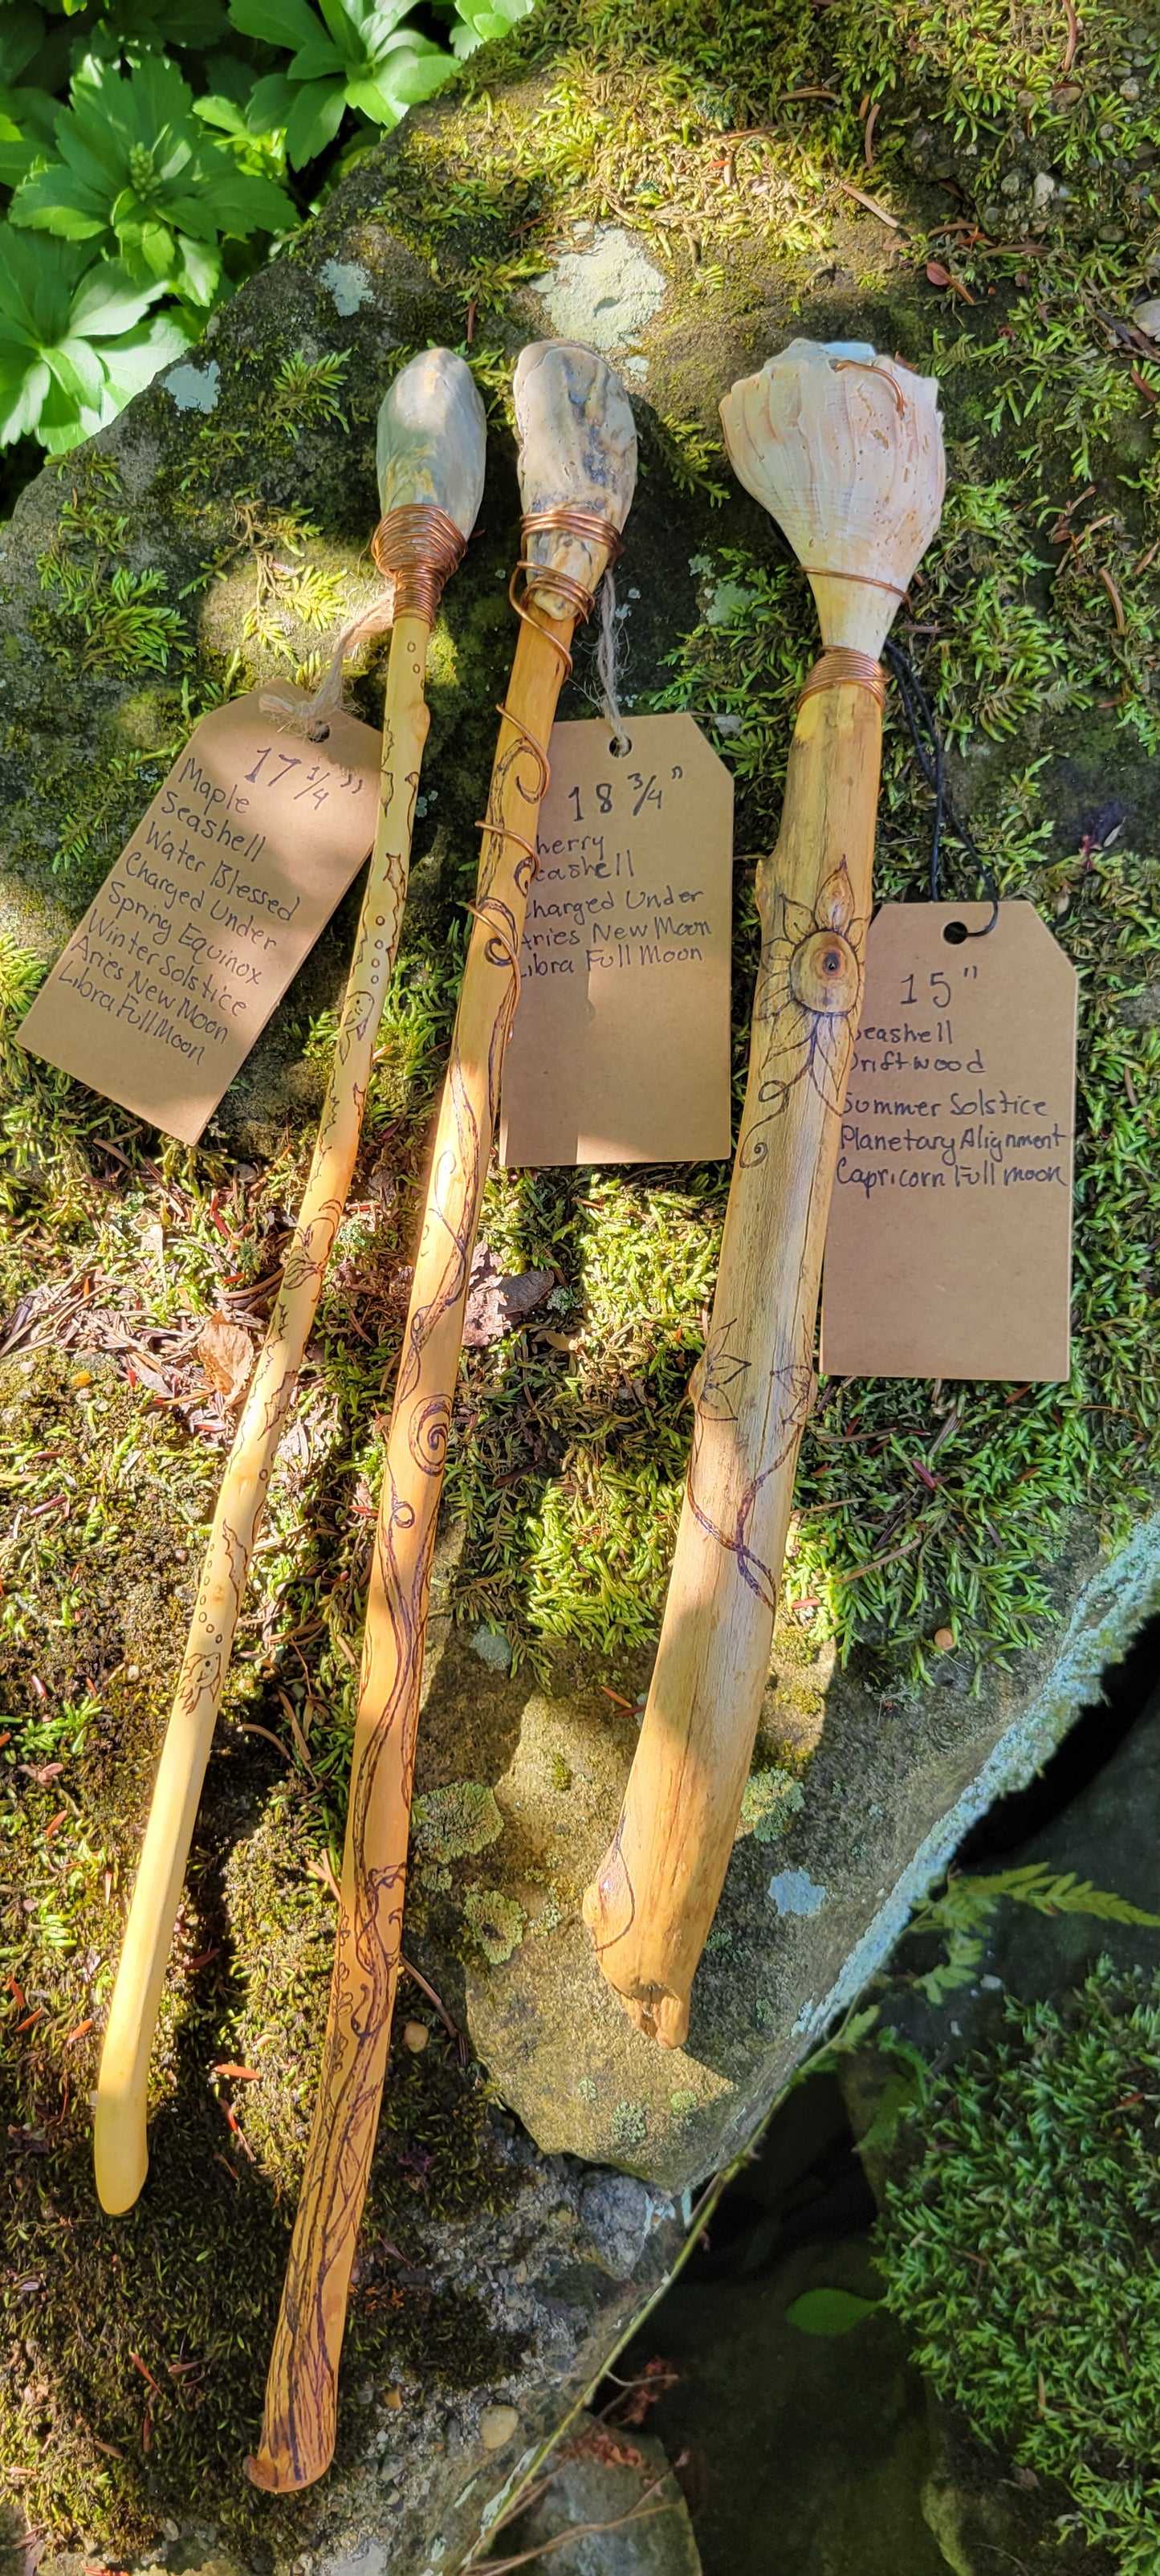 17 1/4"
Maple
Seashell
Water Blessed
Charged Under
Spring Equinox
Winter Solstice
Aries New Moon
Libra Full Moon
18 3/4"
herry
eashell
Charged Under
Aries New Moon
Libra Full Moon
15"
Seashell
Driftwood
Summer Solstice
Planetary Alignment
Capricorn Full moon